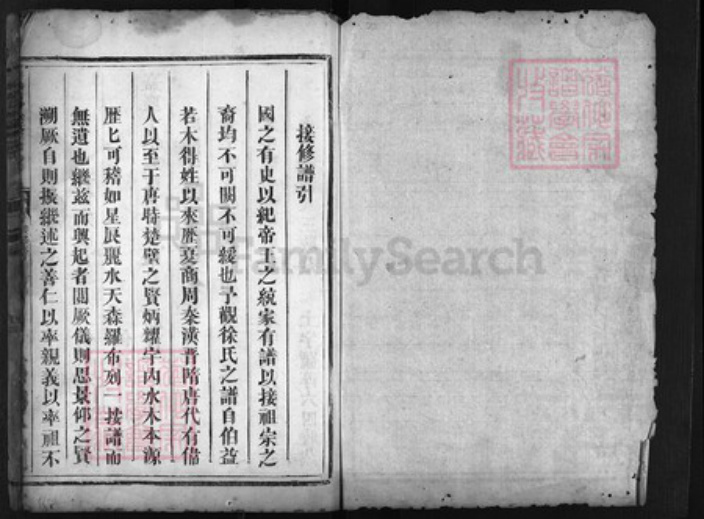 接修譜引
國之有史以紀帝王之統家有譜以接祖宗之
裔均不可闕不可緩也予觀徐氏之譜自伯益
若木得姓以來歷夏商周秦漢晋隋唐代有偹
人以至于唐時楚璧之賢炳耀宇內水木本源
歷匕可稽如星辰麗水天森羅布列一接譜而
無遺也繼茲而興起者閱厥儀則思景仰之賢
溯厥自則振繼述之善仁以率親義以率祖不
FamilySearch